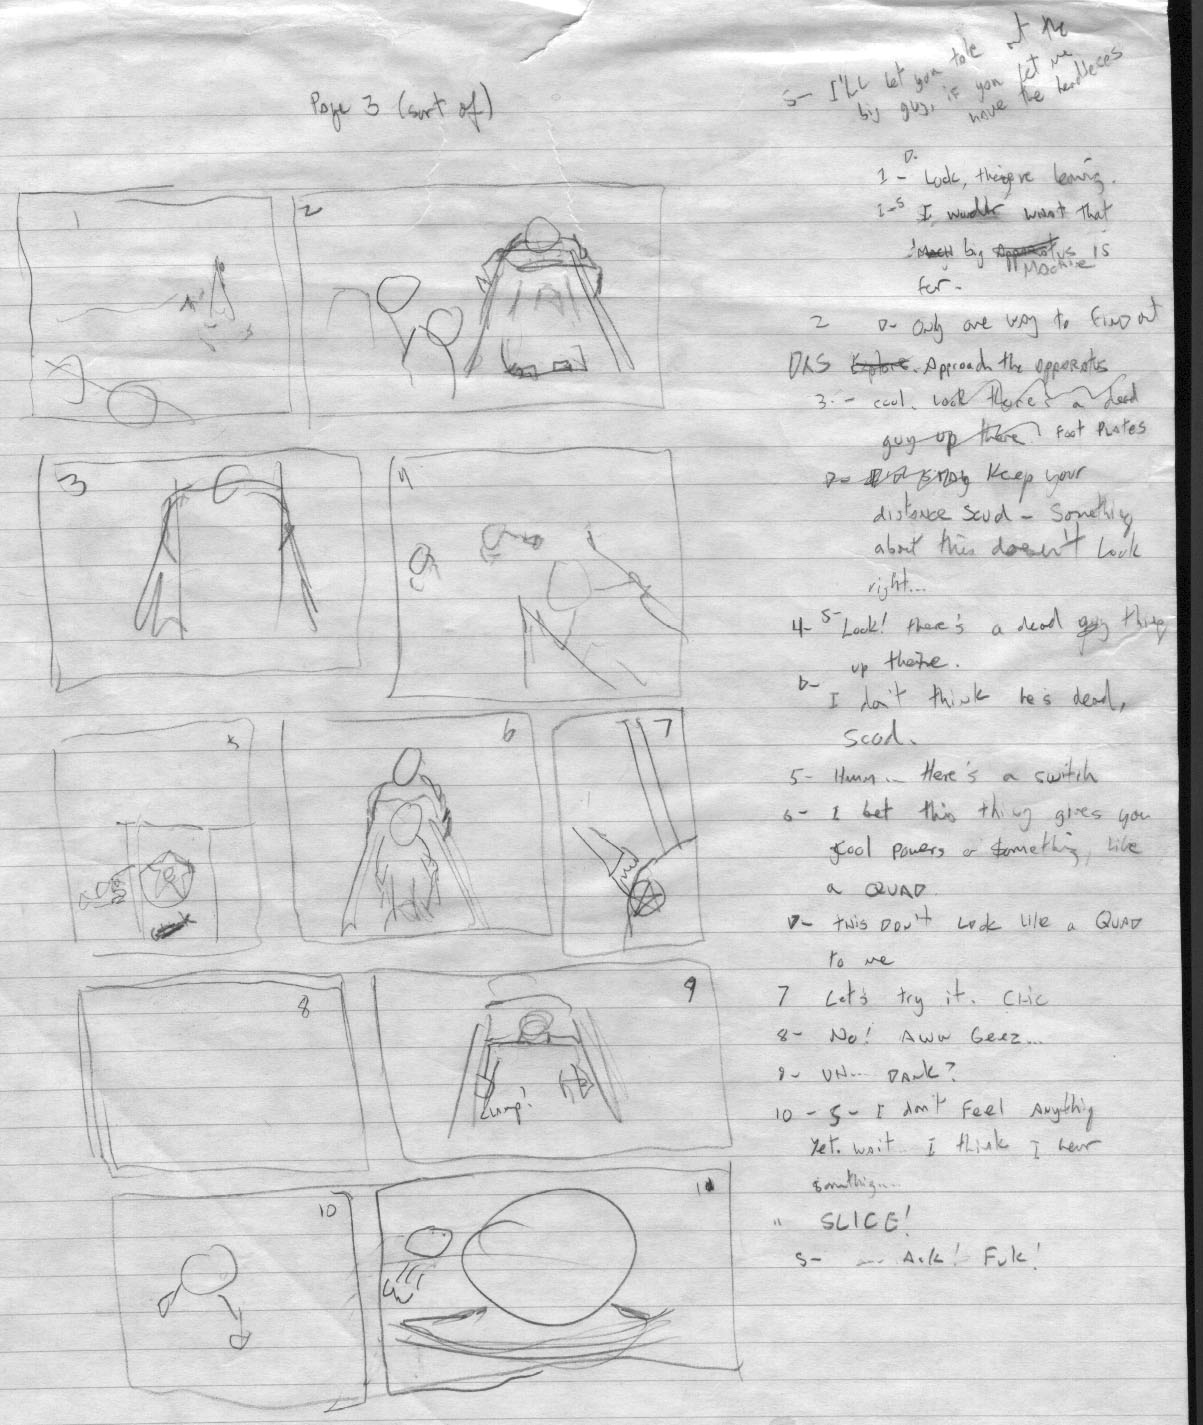 Page 3 (sort of)
S- I'LL let you take out the
big guy, if you let me
have the headless
1 - D- Look, they're leaving.
1-S I want that
big Machine is
for-
2 D- Only one way to FIND out
D&S Explore. Approach the apparatus
3.- cool. Look there's a dead
guy up there Foot Plates
D- Keep your
distance Scud - Something
about this doesn't Look
right...
4- S- Look! there's a dead guy thing
up there.
D-
I don't think he's dead,
Scud.
5- Hmm... Here's a switch
6- I bet this thing gives you
cool powers or something, like
a QUAD
D- THIS DON't Look like a QUAD
to me
7 Let's try it. CLIC
8- No! AWW Geez...
9- UN... DANK?
10 - S- I don't Feel Anything
Yet. wait.. I think I hear
something...
" SLICE!
S- ... Ack! Fuk!
1
2
3
4
5
6
7
8
9
Lump!
10
11